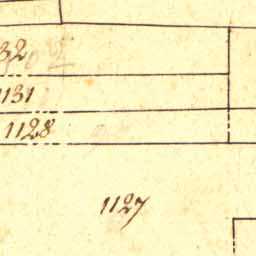 32
1131
1128
1127